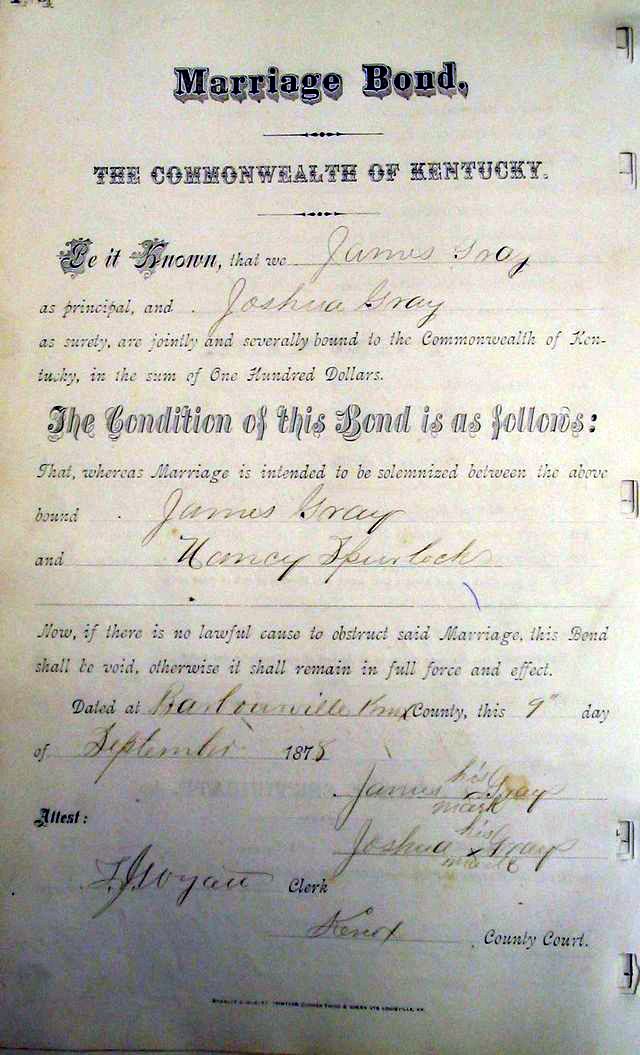 Marriage Bond,
THE COMMONWEALTH OF KENTUCKY.
Be it Known, that we James Gray
as principal, and Joshua Gray
as surety, are jointly and severally bound to the Commonwealth of Ken-
tucky, in the sum of One Hundred Dollars.
The Condition of this Bond is as follows:
That, whereas Marriage is intended to be solemnized between the above
bound James Gray
and Nancy Spurlock
Now, if there is no lawful cause to obstruct said Marriage, this Bond
shall be void, otherwise it shall remain in full force and effect.
Dated at Barbourville Knox County, this 9" day
of September 1878
his
James Gray
mark
Attest:
his
Joshua x Gray
mark
Clerk
Knox County Court.